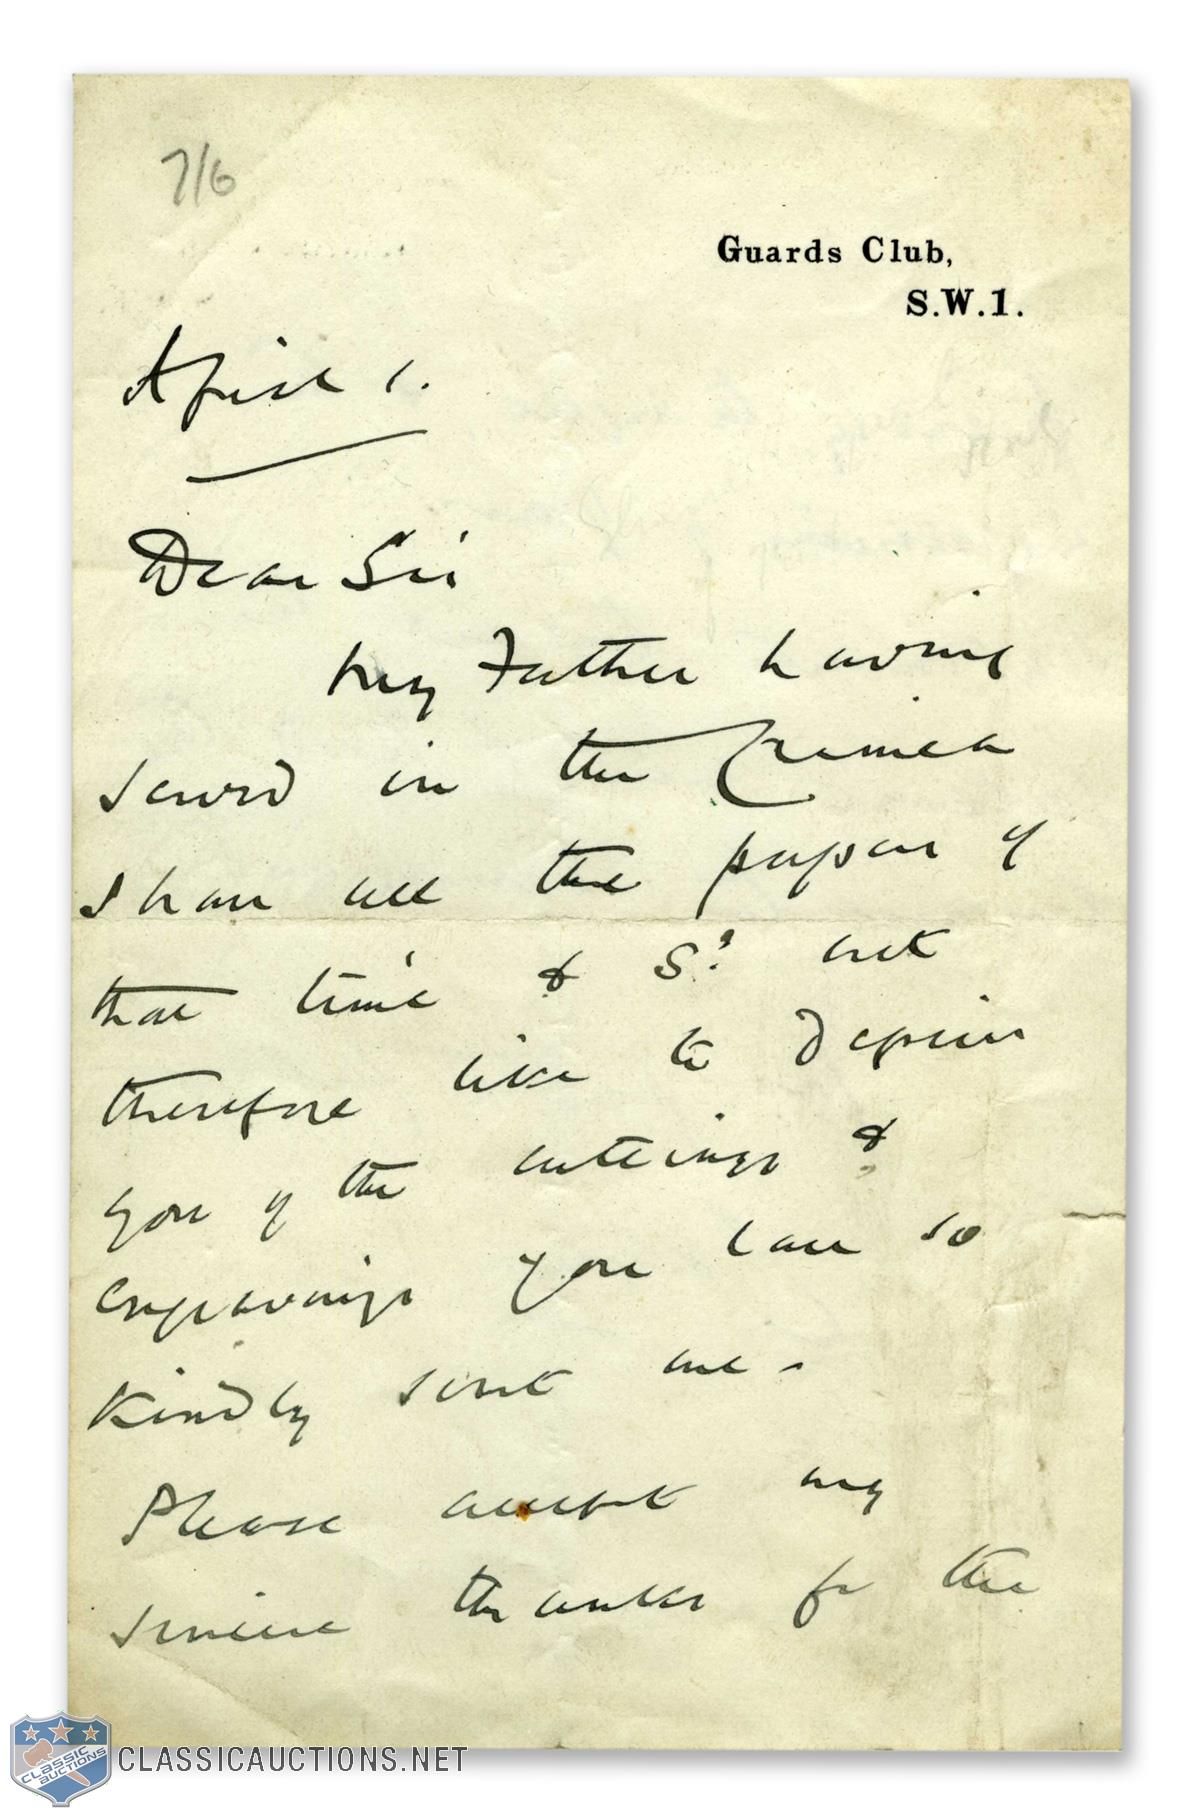 7/6
Guards Club,
S.W.1.
April 1.
Dear Sir
My Father having
served in the Crimea
I have all the papers of
that time & Sd. not
therefore like to deprive
you of the cuttings &
engravings you have so
kindly sent me -
Please accept my
sincere thanks for the
CLASSIC AUCTIONS
CLASSICAUCTIONS.NET